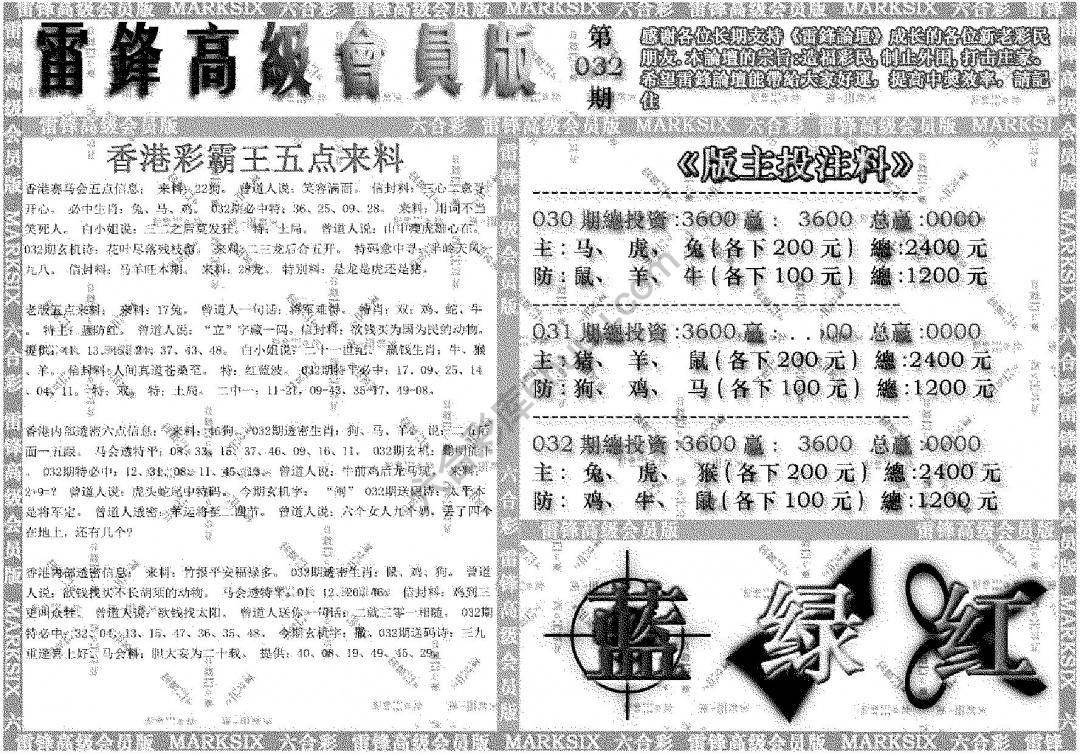 雷锋高级会员版 MARKSIX 六合彩 雷锋高级会员版 MARKSIX 六合彩 雷锋高级会员版 MARKSIX
雷鋒高級會員版
第
032
期
感謝各位长期支持《雷鋒論壇》成长的各位新老彩民
朋友.本論壇的宗旨:造福彩民,制止外围,打击庄家.
希望雷鋒論壇能帶給大家好運，提高中獎效率，請記
住
雷锋高级会员版 六合彩 雷锋高级会员版 MARKSIX 六合彩 雷锋高级会员版 MARKSIX
香港彩霸王五点来料
香港赛马会五点信息： 来料：22狗。 曾道人说：笑容满面。 信封料：三心二意寻
开心。 必中生肖：兔、马、鸡。 032期必中特：36、25、09、28。 来料：用词不当
笑死人。 白小姐说：三二之后莫发狂。 特：土局。 曾道人说：山中狸虎雄心在。
032期玄机诗：花叶尽落残枝留。 来料：二三龙后合五开。 特码意中寻：半岭天风
九八。 信封料：马羊旺本期。 来料：28龙。 特别料：是龙是虎还是猪。
老版五点来料： 来料：17兔。 曾道人一句话：将军难得。 特肖：双：鸡、蛇、牛
。 特土：蓝防红。 曾道人说：“立”字藏一码。信封料：欲钱买为国为民的动物。
37、43、48。 白小姐说：二十一世纪。 赢钱生肖：牛、猴
、羊。 信封料：人间真道苍桑至。 特：红蓝波。 032期特平必中：17、09、25、14
、04、11。 特：双。 特：土局。 二中一：11-27，09-43，35-17，49-08。
香港内部透密六点信息： 来料：46狗。 032期透密生肖：狗、马、羊。
面一五跟。 马会透特平：08、33、15、37、46、09、16、11。 032期玄机：
。 032期特必中：12、31、08、11、45、13。 曾道人说：牛前鸡后龙马玩。 来料：
2+9=? 曾道人说：虎头蛇尾中特码。 今期玄机字： “闹” 032期送码诗：太平本
是将军定。 曾道人透密：幸运将至二调节。 曾道人说：六个女人九个妈，丢了四个
在地上，还有几个?
香港内部透密信息： 来料：竹报平安福禄多。 032期透密生肖：鼠、鸡、狗。 曾道
人说：欲钱找买不长胡须的动物。 马会透特平：01、12、20、46。 信封料：鸡到三
更叫众牲。 曾道人说：欲钱找太阳。 曾道人送你一句话：二就三零一相随。 032期
特必中：32、04、13、15、47、36、35、48。 今期玄机字：撒、032期送码诗：三九
重逢喜上好、马会料：胆大妄为二十载。 提供：40、08、19、49、45、29。
《版主投注料》
030 期總投資:3600 赢: 3600 总赢:0000
主: 马、 虎、 兔(各下 200 元) 總:2400 元
防: 鼠、 羊、 牛(各下 100 元) 總:1200 元
031 期總投資:3600 赢: 总赢:0000
主: 猪、 羊、 鼠(各下 200 元) 總:2400 元
防: 狗、 鸡、 马(各下 100 元) 總:1200 元
032 期總投資:3600 赢: 3600 总赢:0000
主: 兔、 虎、 猴(各下 200 元) 總:2400 元
防: 鸡、 牛、 鼠(各下 100 元) 總:1200 元
雷锋高级会员版 雷锋高级会员版
藍 绿 红
雷锋高级会员版 MARKSIX 六合彩 雷锋高级会员版 MARKSIX 六合彩 雷锋高级会员版 MARKSIX 六合彩 雷锋